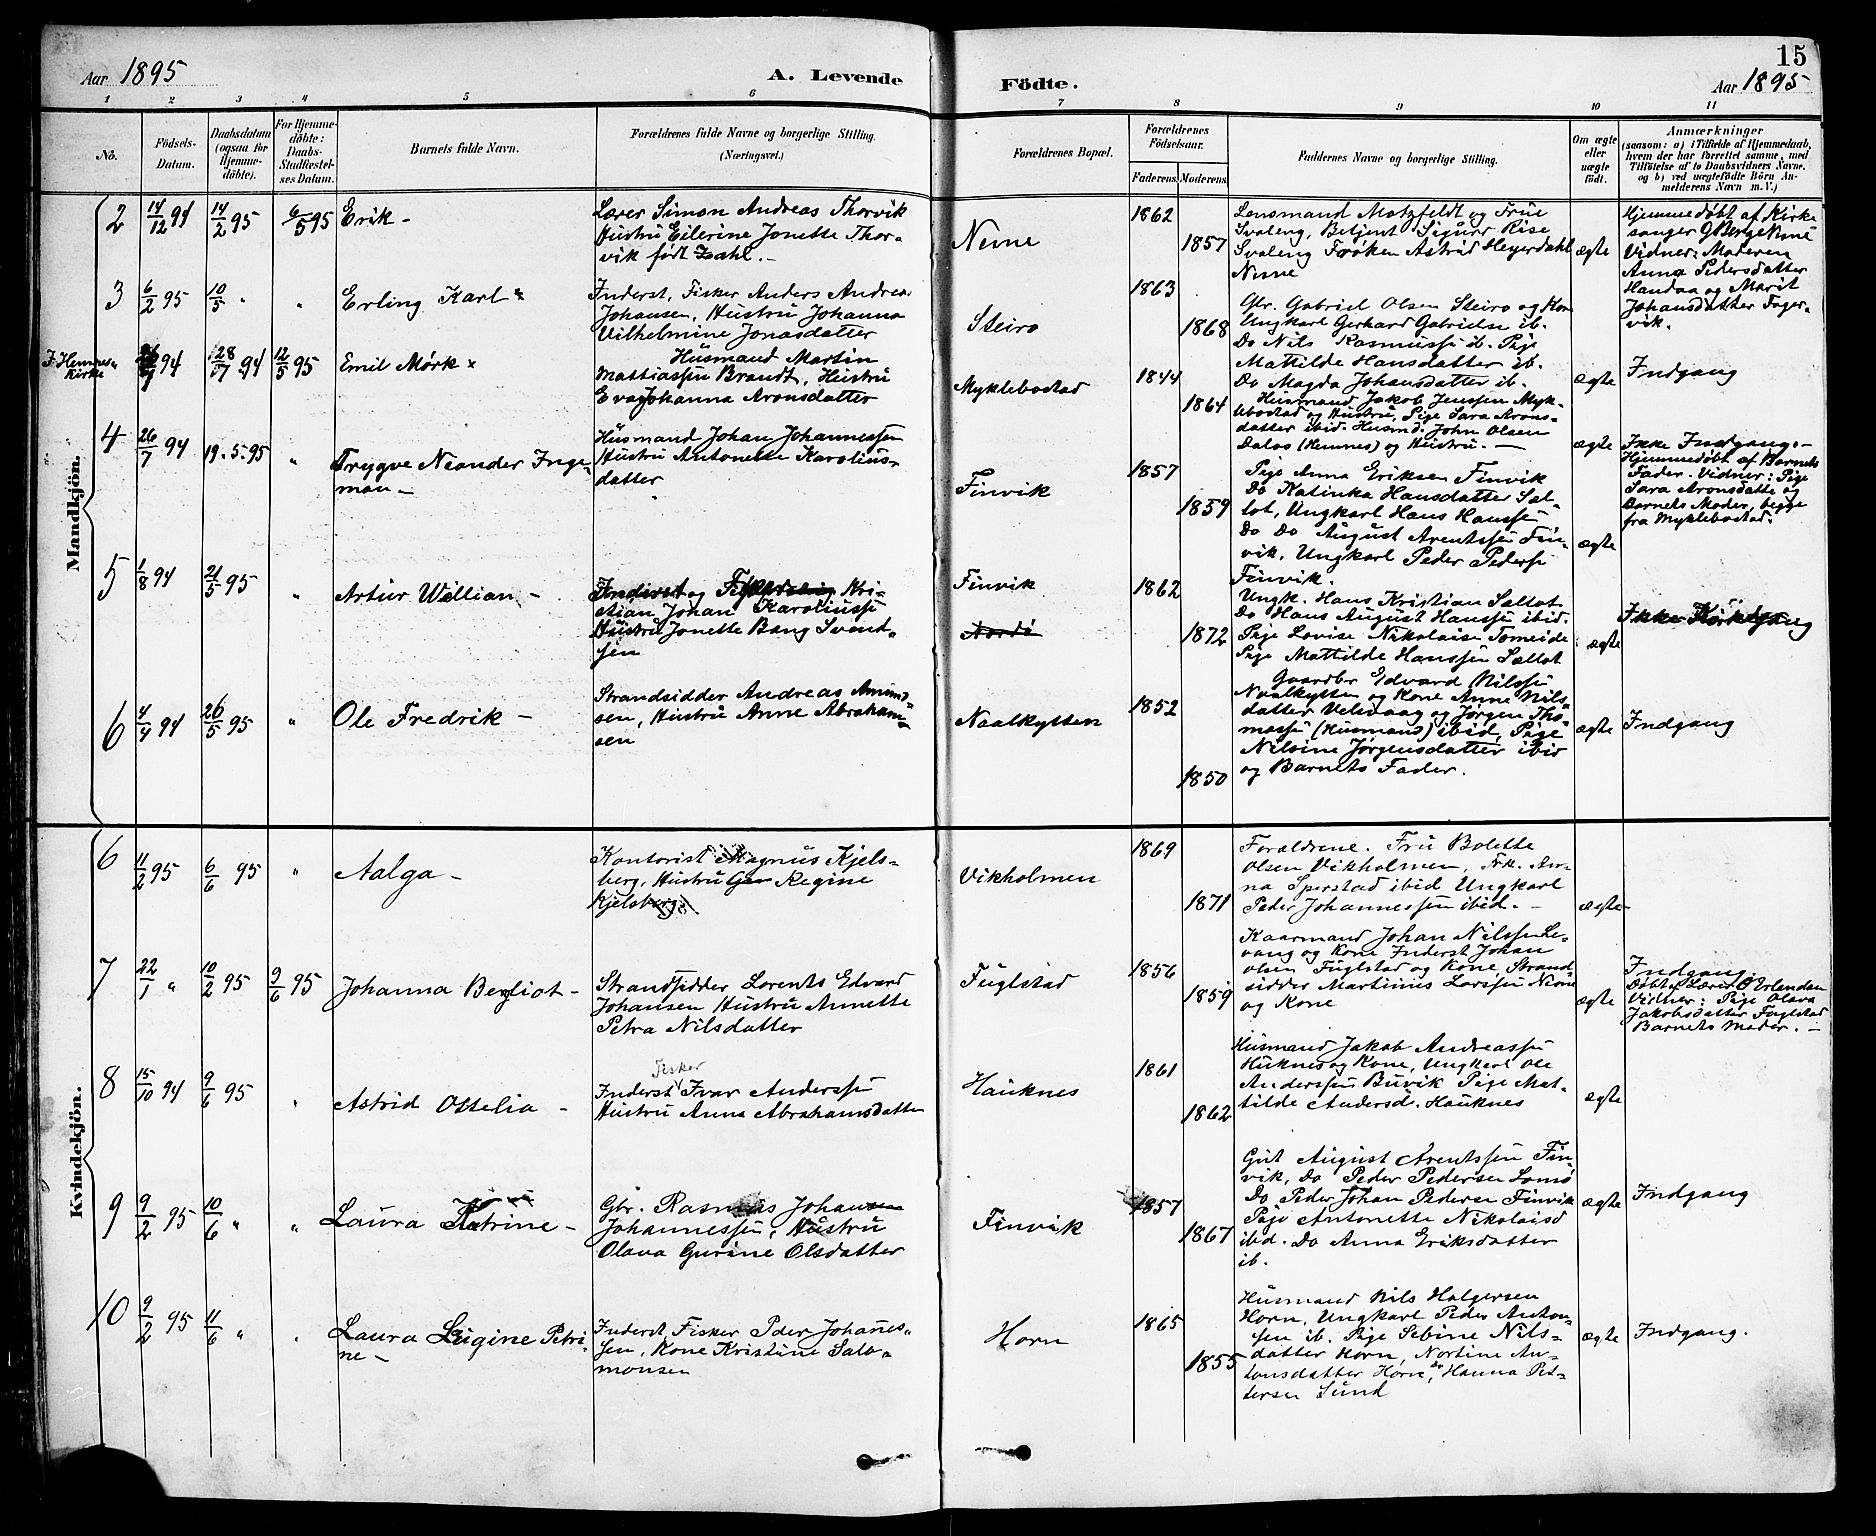 15
Aar 1895
A. Levende
Födte.
Aar 1895
1 2 3 4 5 6 7 8 9 10 11
Nò.
Födsels-
Datum.
Daabsdatum
(ogsaa for
Hjemme-
döbte).
For Hjemme-
döbte:
Daabs-
Stadfæstel-
ses Datum.
Barnets fulde Navn.
Forældrenes fulde Navne og borgerlige Stilling.
(Næringsvei.)
Forældrenes Bopæl.
Forældrenes
Födselsaar.
Faderens.
Moderens.
Faddernes Navne og borgerlige Stilling.
Om ægte
eller
uægte
födt.
Anmærkninger
(saasom: a) i Tilfælde af Hjemmedaab,
hvem der har forrettet samme, med
Tilföielse af to Daabsvidners Navne.
og b) ved uægtefödte Börn An-
melderens Navn m.V.)
Mandkjön.
2
14/12 94
14/2 95
6/5 95
Erik -
Lærer Simon Andreas Thorvik
Hustru Eilerine Jonette Thor-
vik født Zahl. -
Nesne
1862
1857
Lensmand Motzfeldt og Frue
Svaleng, Betjent Sigurd Rise
Svaleng Frøken Astrid Heyerdahl
Nesne
ægte
Hjemmedøbt af Kirke
sanger
Vidner: Moderen
Anna Pedersdatter
Handaa og Marit
Johansdatter Fager-
vik.
3
6/2 95
10/5 "
"
Erling Karl "
Inderst, Fisker Anders Andreas
Johansen, Hustru Johanna
Vilhelmine Jonasdatter
Steiro
1863
1868
Gbr. Gabriel Olsen Steiro og Kone
Ungkarl Gerhard Gabrielse ib.
Do Nils Rasmusse ib. Pige
Mathilde Hansdatter ib.
Do Magda Johansdatter ib.
I Hemnes
Kirke
94
28/7 94
12/5 95
Emil Mørk "
Husmand Martin
Mattiassen Brandt, Hustru
Eva Johanna Aronsdatter
Myklebostad
1844
1864
ægte
Husmand Jakob Jenssen Myk-
lebostad og Hustru, Pige Sara Arons-
datter ibid. Husmd. John Olsen
Dalos (Hemnes) og Hustru. -
Indgang
4
26/7 94
19.5.95
"
Trygve Neander Inge-
man -
Husmand Johan Johannessen
Hustru Antonette Karolius-
datter
Finvik
1857
1859
Pige Anna Eriksen Finvik
Do Katinka Hansdatter Sæl-
tot, Ungkarl Hans Hanssen
Do Do August Arentssen Fin-
vik. Ungkarl Peder Pederse
Finvik.
ægte
ægte
Ikke Indgang -
Hjemmedøbt af Barnets
Fader. Vidner: Pige
Sara Aronsdatte og
Barnets Moder, begge
fra Myklebostad.
5
1/8 94
21/5 95
"
Artur Willian -
Inderst og Kri-
stian Johan Karoliusse
Hustru Jonette Bang Svend-
sen
Finvik
1862
1872
Ungk. Hans Kristian Sæltot
Do Hans August Hanssen ibid.
Pige Lovise Nikolaise Tomeide
Pige Mathilde Hanssen Sæltot
ægte
6
4/4 94
26/5 95
"
Ole Fredrik -
Strandsidder Andreas Amund-
sen, Hustru Anne Abraham-
sen
Naalkytten
1852
1850
Gaardbr Edvard Nilsse
Naalkytten og Kone Anne Nils-
datter Velsvaag og Jørgen Tho-
masse (Husmans) ibid, Pige
Nilsine Jørgensdatter ibid
og Barnets Fader.
ægte
Indgang
Kvindekjön.
6
11/2 95
6/6 95
"
Aalga -
Kontorist Magnus Kjels-
berg, Hustru Regine
Kjelsberg
Vikholmen
1869
1871
Forældrene. Fru Bolette
Olsen Vikholmen, Frk. An-
na Sperstad ibid Ungkarl
Peder Johannessen ibid. -
ægte
7
22/1 "
10/2 95
9/6 95
Johanna Bergliot -
Strandsidder Lorents Edvard
Johansen Hustru Annette
Petra Nilsdatter
Fuglstad
1856
1859
Kaarmand Johan Nilssen Le-
vang og Kone Inderst Johan
Olsen Fuglstad og Kone, Strand
sidder Martinus Larssen Nesne
og Kone
ægte
Indgang.
Døbt af Lærer O Erlandsen
Vidner: Pige Olava
Jakobsdatter Fuglstad
Barnets Moder. -
8
15/10 94
9/6 95
"
Astrid Ottelia -
Fisker
Inderst Ivar Anderssen
Hustru Anna Abrahamsdatter
Hauknes
1861
1862
Husmand Jakob Andreassen
Huknes og Kone, Ungkarl Ole
Anderssen Buvik Pige Mat-
tilde Andersd. Hauknes
ægte
9
9/2 95
10/6 "
"
Laura Katrine -
Gbr. Rasmus Johan
Johannessen, Hustru
Olava Gurine Olsdatter
Finvik
1857
1867
Gut August Arentssen Fin-
vik, Do Peder Pedersen
Do Peder Johan Pedersen Finvik
Pige Antonette Nikolaisd
ibid. Do Anna Eriksdatter
ib.
ægte
Indgang
10
9/2 95
11/6 "
"
Laura Lugine Petri-
ne -
Inderst, Fisker Peder Johannes-
sen, Kone Kristine Salo-
monsen
Horn
1865
1855
Husmand Nils Holgersen
Horn, Ungkarl Peder Anton-
sen ib. Pige Sebine Nils-
datter Horn, Nortine An-
tonsdatter Horn, Do Hanna Pe-
dersen Sund
ægte
Indgang.